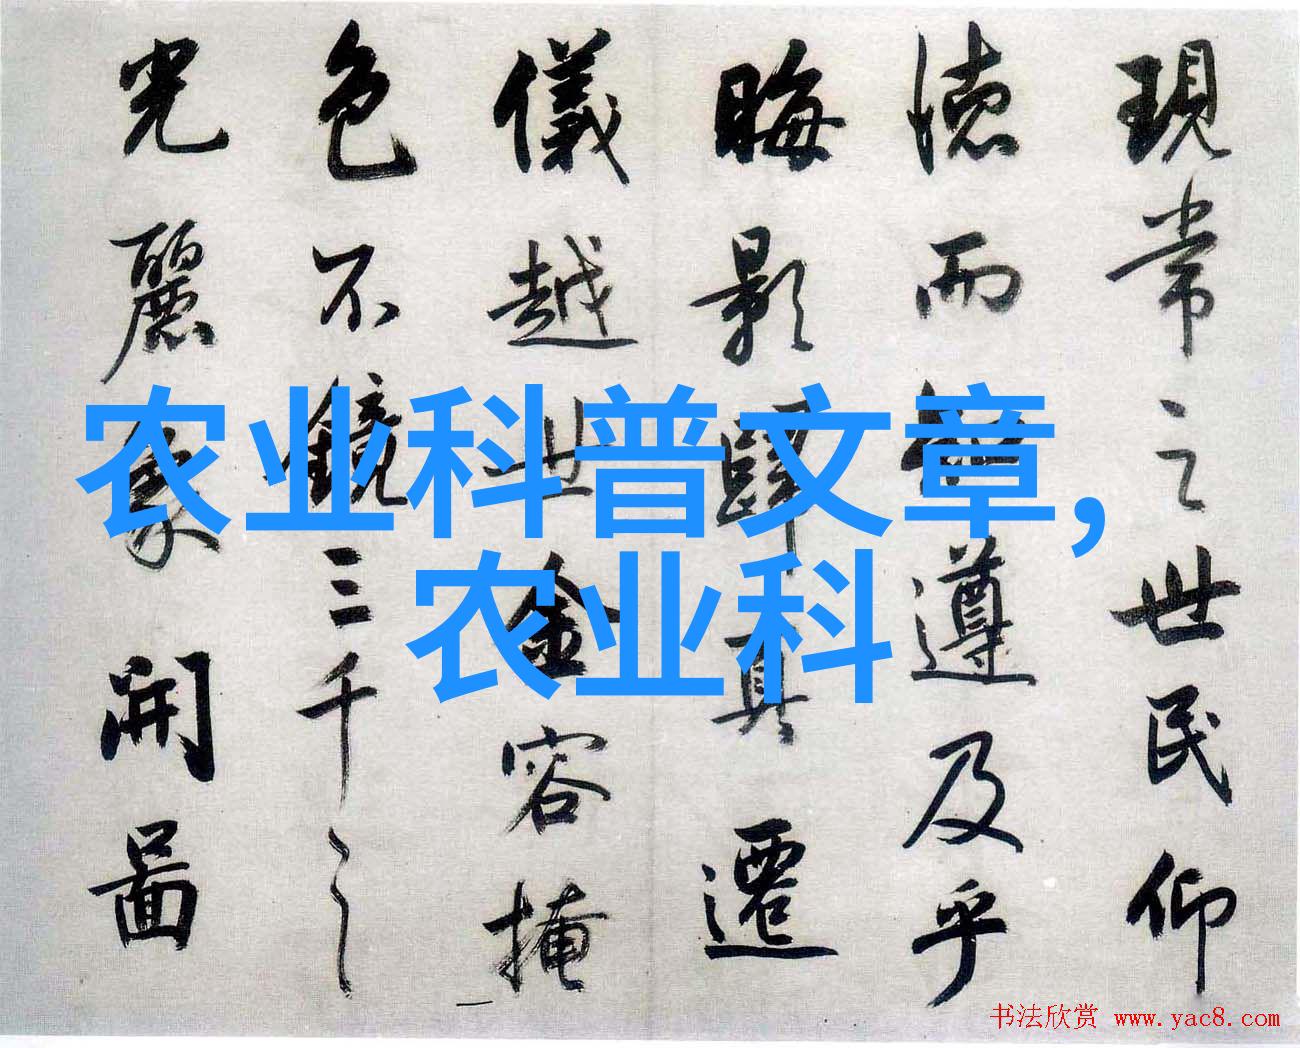 現常之世民仰
德而知遵及乎
晦影歸真遷
儀越世金容掩
色不鏡三千之
光麗象開圖
农业科普文章,
农业科
书法欣赏 www.yac8.com